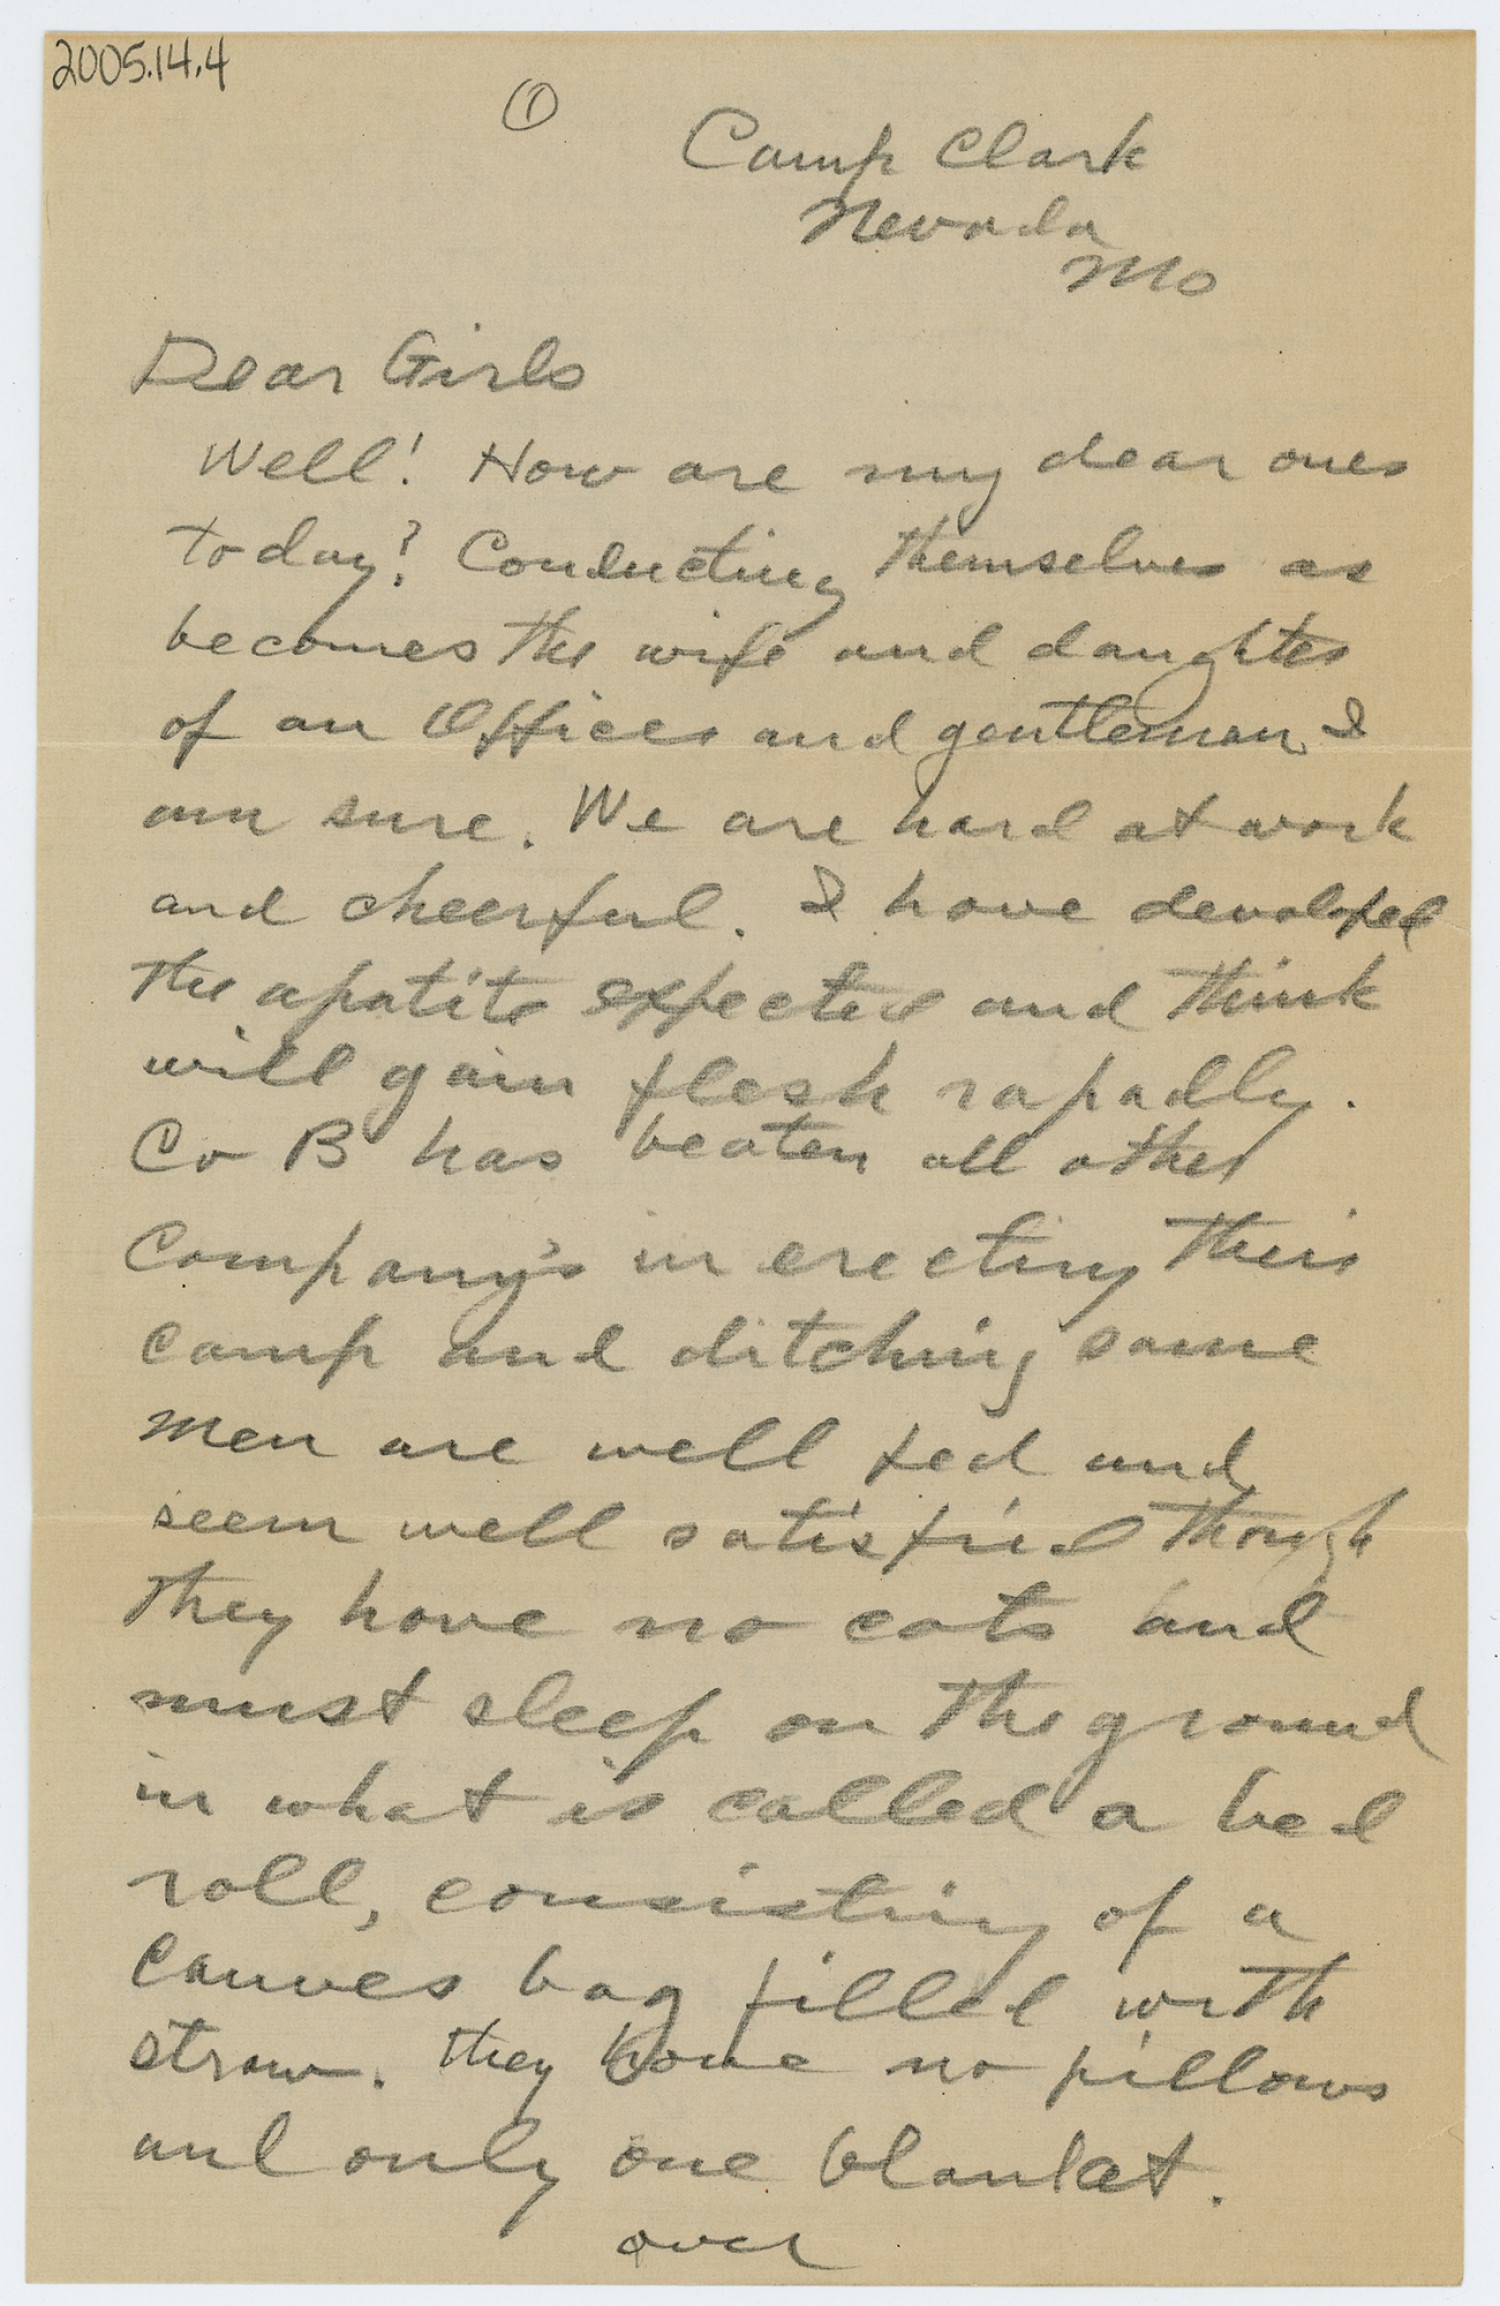 2005.14.4
①
Camp Clark
Nevada
Mo
Dear Girls
Well! How are my dear ones
today? Conducting themselves as
becomes the wife and daughter
of an Officer and gentleman I
am sure. We are hard at work
and cheerful. I have devoloped
the apatite expected and think
will gain flesh rapadly.
Co B has beaten all other
Company's in erecting their
camp and ditching same
Men are well fed and
seem well satisfied though
they have no cots and
must sleep on the ground
in what is called a bed
roll, consisting of a
canves bag filled with
straw. they have no pillows
and only one blanket.
over